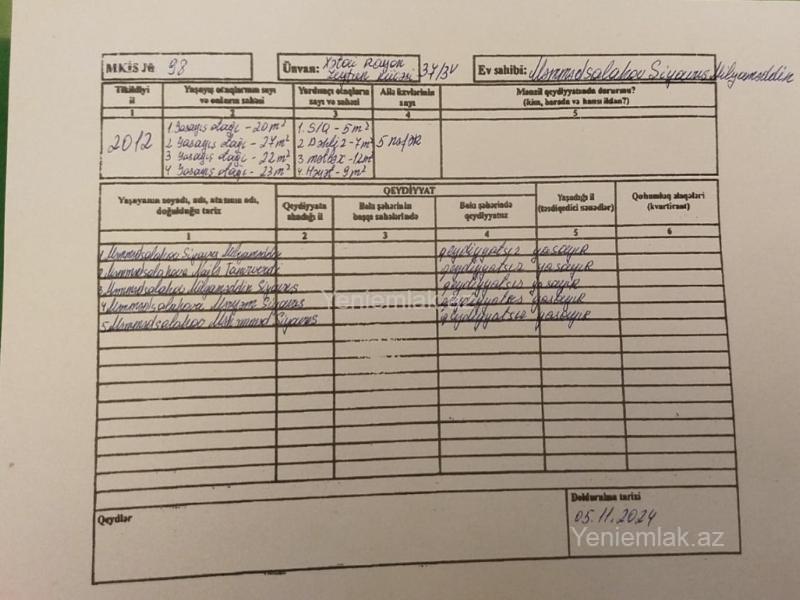 MKİS № 98
Ünvan: Xətai Rayon
Zeytun küçəsi 37/3V
Ev sahibi: Məmmədsalahov Siyavuş Milyanəddin
Tikildiyi il
Yaşayış otaqlarının sayı və onların sahəsi
Yardımçı otaqların sayı və sahəsi
Ailə üzvlərinin sayı
Mənzil qeydiyyatında durursmu? (kim, harada və hansı ildən?)
1 2 3 4 5
2012
1 Yaşayış otağı - 20 m²
2 Yaşayış otağı - 27 m²
3 Yaşayış otağı - 22 m²
4 Yaşayış otağı - 23 m²
1. S/Q - 5 m²
2 Dəhliz - 7 m²
3 mətbəx - 12 m²
4. Həyət - 9 m²
5 nəfər
Yaşayanın soyadı, adı, atasının adı, doğulduğu tarix
QEYDİYYAT
Qeydiyyata alındığı il
Bakı şəhərinin başqa sahələrində
Bakı şəhərində qeydiyyatsız
Yaşadığı il (təsdiqedici sənədlər)
Qohumluq əlaqələri (kvartirant)
1 2 3 4 5 6
1 Məmmədsalahov Siyavuş qeydiyyatsız yaşayır
2 Məmmədsalahova qeydiyyatsız yaşayır
3 Məmmədsalahov Milyanəddin Siyavuş qeydiyyatsız yaşayır
4 Məmmədsalahova Məryəm Siyavuş qeydiyyatsız yaşayır
5 Məmmədsalahov Məhəmməd Siyavuş qeydiyyatsız yaşayır
Yeniemlak.az
Qeydlər
Doldurulma tarixi
05.11.2024
Yeniemlak.az